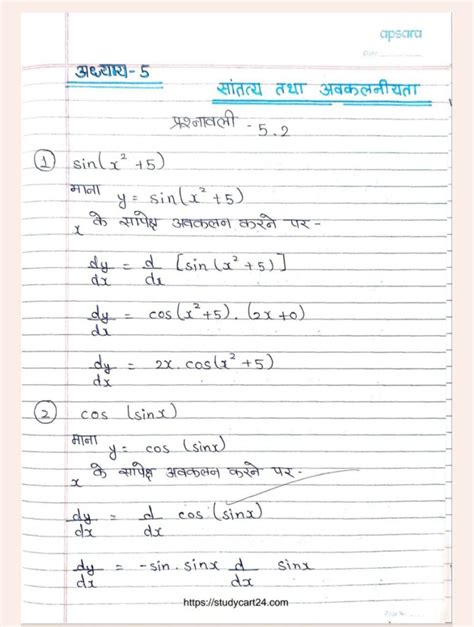 apsara
Date
अध्याय - 5
सांतत्य तथा अवकलनीयता
प्रश्नावली - 5.2
① sin(x² + 5)
माना y = sin(x² + 5)
x के सापेक्ष अवकलन करने पर -
dy/dx = d/dx [sin(x² + 5)]
dy/dx = cos(x² + 5) . (2x + 0)
dy/dx = 2x. cos(x² + 5)
② cos (sinx)
माना y = cos (sinx)
x के सापेक्ष अवकलन करने पर -
dy/dx = d/dx cos (sinx)
dy/dx = -sin. sinx d/dx sinx
https://studycart24.com